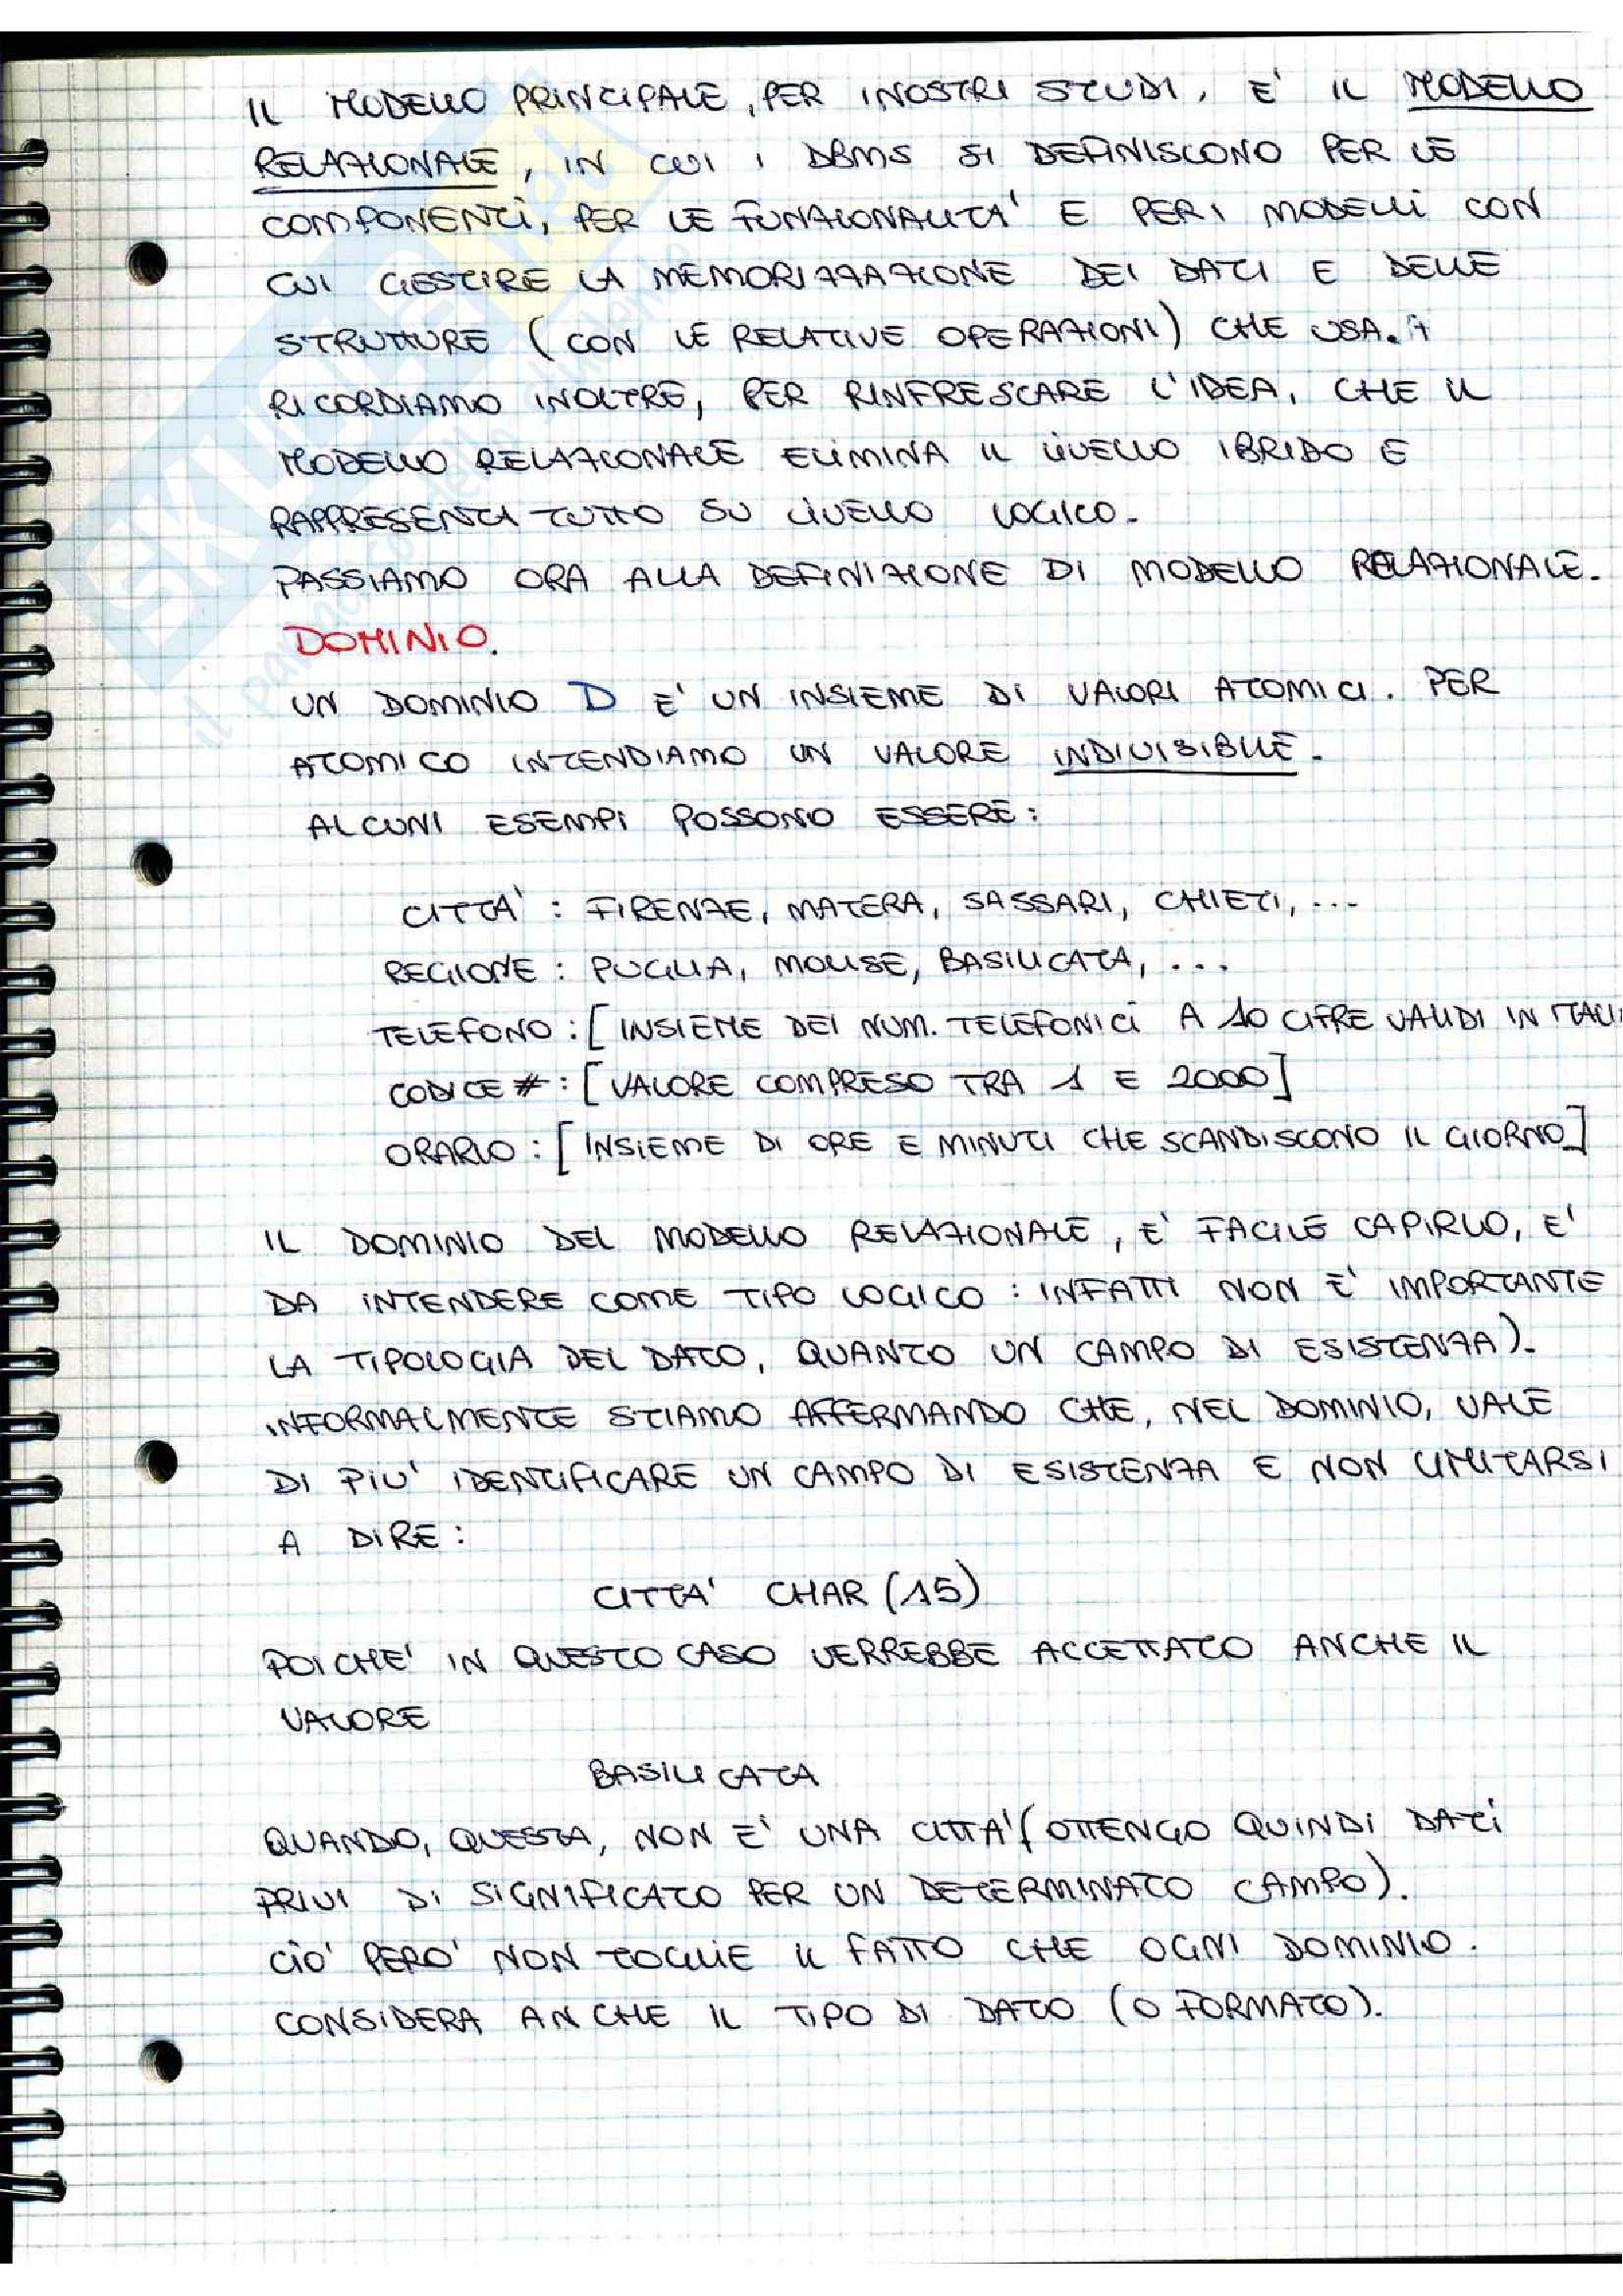 IL MODELLO PRINCIPALE, PER I NOSTRI STUDI, E' IL MODELLO
RELAZIONALE, IN CUI I DBMS SI DEFINISCONO PER LE
COMPONENTI, PER LE FUNZIONALITA' E PER I MODELLI CON
CUI GESTIRE LA MEMORIZZAZIONE DEI DATI E DELLE
STRUTTURE (CON LE RELATIVE OPERAZIONI) CHE USA.
RICORDIAMO INOLTRE, PER RINFRESCARE L'IDEA, CHE IL
MODELLO RELAZIONALE ELIMINA IL LIVELLO IBRIDO E
RAPPRESENTA TUTTO SU LIVELLO LOGICO.
PASSIAMO ORA ALLA DEFINIZIONE DI MODELLO RELAZIONALE.
DOMINIO.
UN DOMINIO D E' UN INSIEME DI VALORI ATOMICI. PER
ATOMICO INTENDIAMO UN VALORE INDIVISIBILE.
ALCUNI ESEMPI POSSONO ESSERE:
CITTA' : FIRENZE, MATERA, SASSARI, CHIETI, ...
REGIONE : PUGLIA, MOLISE, BASILICATA, ...
TELEFONO : [INSIEME DEI NUM. TELEFONICI A 10 CIFRE VALIDI IN ITALI
CODICE # : [VALORE COMPRESO TRA 1 E 2000]
ORARIO : [INSIEME DI ORE E MINUTI CHE SCANDISCONO IL GIORNO]
IL DOMINIO DEL MODELLO RELAZIONALE, E' FACILE CAPIRLO, E'
DA INTENDERE COME TIPO LOGICO : INFATTI NON E' IMPORTANTE
LA TIPOLOGIA DEL DATO, QUANTO UN CAMPO DI ESISTENZA).
INFORMALMENTE STIAMO AFFERMANDO CHE, NEL DOMINIO, VALE
DI PIU' IDENTIFICARE UN CAMPO DI ESISTENZA E NON LIMITARSI
A DIRE :
CITTA' CHAR (15)
POICHE' IN QUESTO CASO VERREBBE ACCETTATO ANCHE IL
VALORE
BASILICATA
QUANDO, QUESTA, NON E' UNA CITTA' (OTTENGO QUINDI DATI
PRIVI DI SIGNIFICATO PER UN DETERMINATO CAMPO).
CIO' PERO' NON TOGLIE IL FATTO CHE OGNI DOMINIO.
CONSIDERA ANCHE IL TIPO DI DATO (O FORMATO).